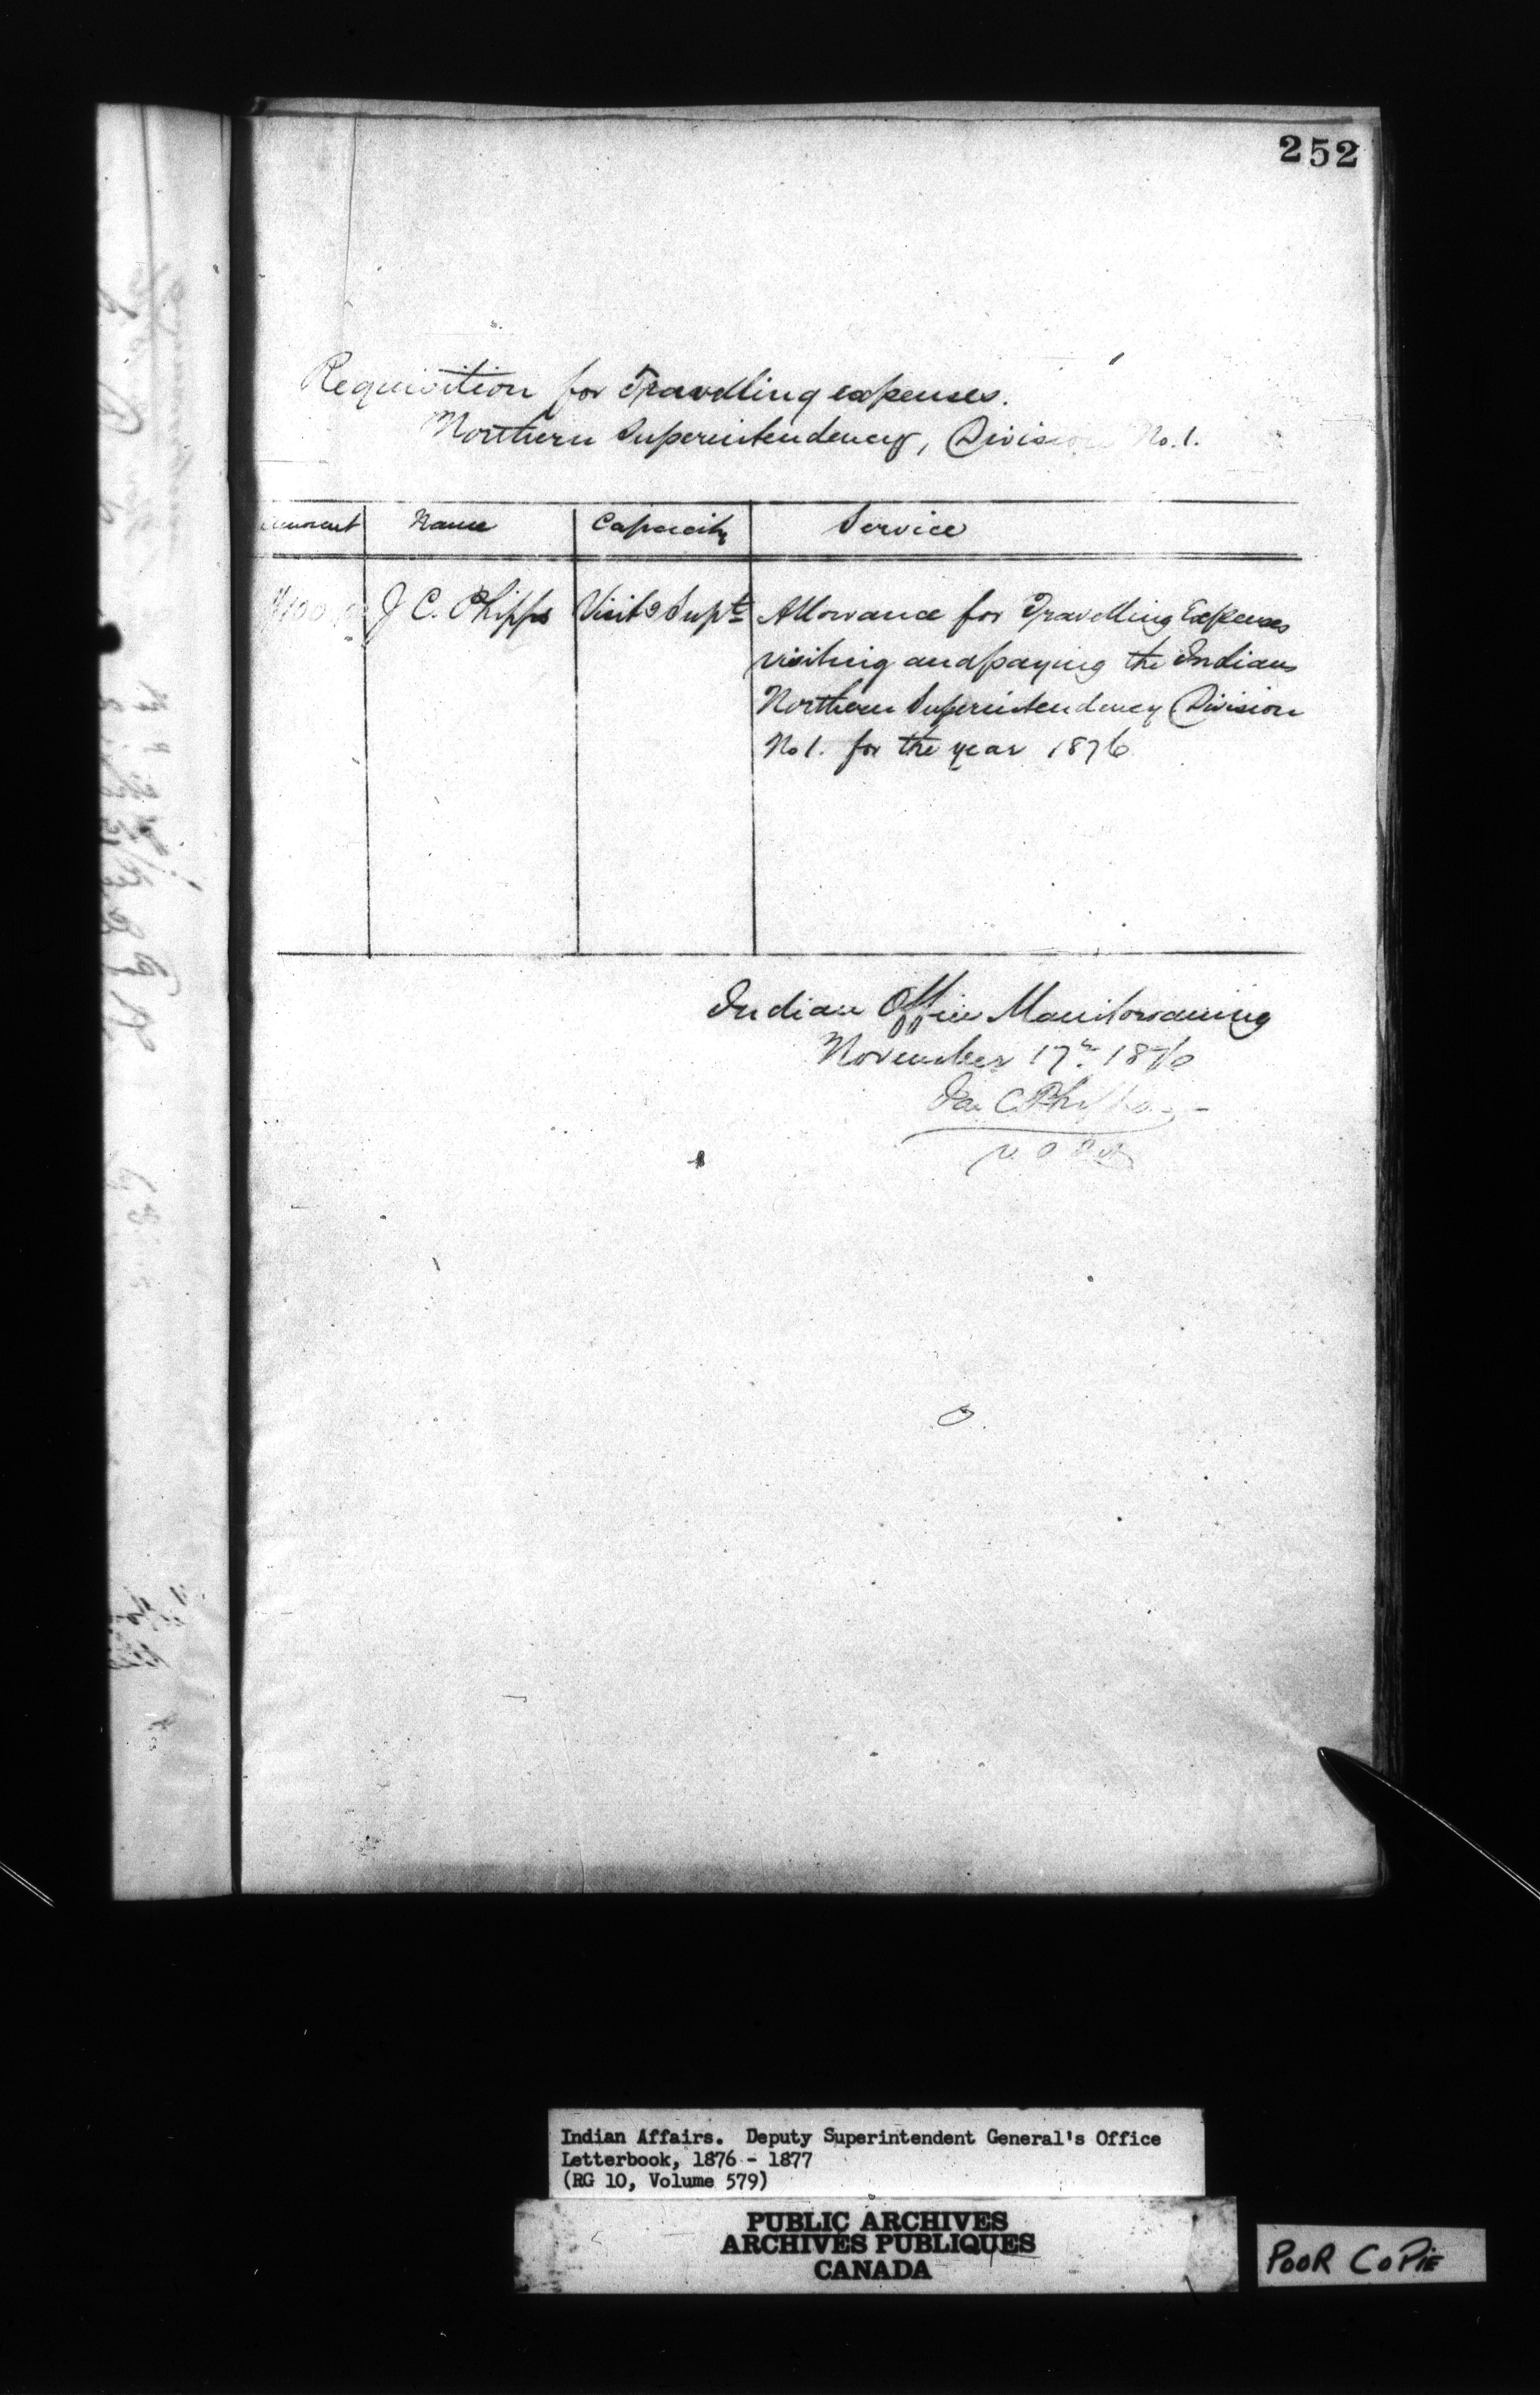 252
Requisition for Travelling expenses.
Northern Superintendency, Division No. 1.
Name Capacity Service
J C. Phipps Visitg Supt Allowance for Travelling Expenses
visiting and paying the Indians
Northern Superintendency Division
No 1. for the year 1876
Indian Office Manitowaning
November 17th 1876
Jas C. Phipps
Indian Affairs. Deputy Superintendent General's Office
Letterbook, 1876 - 1877
(RG 10, Volume 579)
PUBLIC ARCHIVES
ARCHIVES PUBLIQUES
CANADA
POOR COPIE